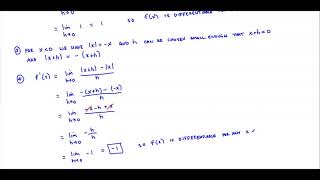 h→0
= lim 1 = 1 SO f(x) IS DIFFERENTIABLE FOR
h→0
③ FOR x<0 WE HAVE |x| = -x AND h CAN BE CHOSEN SMALL ENOUGH THAT x+h<0
AND |x+h| = -(x+h)
④ f'(x) = lim |x+h| - |x|
h→0 h
= lim -(x+h) - (-x)
h→0 h
= lim -x-h+x
h→0 h
= lim -h
h→0 h
= lim -1 = -1 SO f(x) IS DIFFERENTIABLE FOR ANY x <
h→0